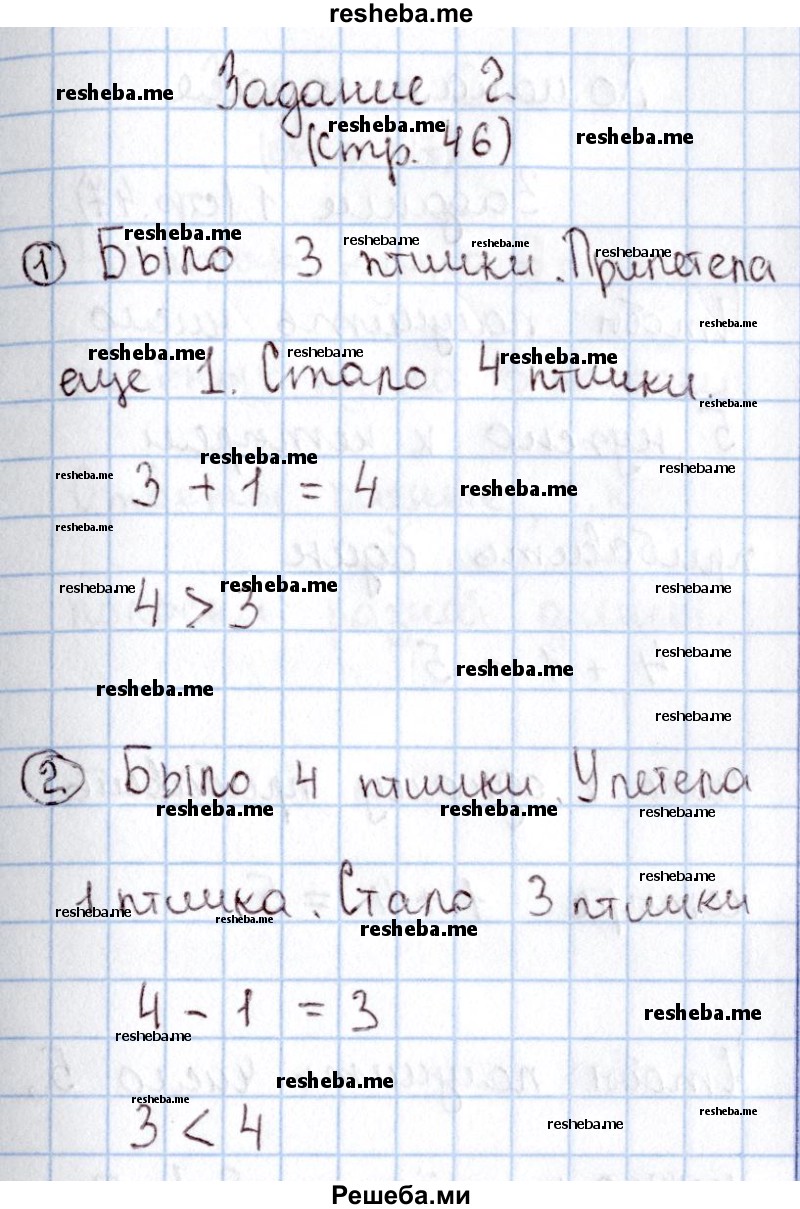 resheba.me
Задание 2
(стр. 46)
① Было 3 птички. Прилетела
еще 1. Стало 4 птички.
3 + 1 = 4
4 > 3
② Было 4 птички. Улетела
1 птичка. Стало 3 птички
4 - 1 = 3
3 < 4
Решеба.ми